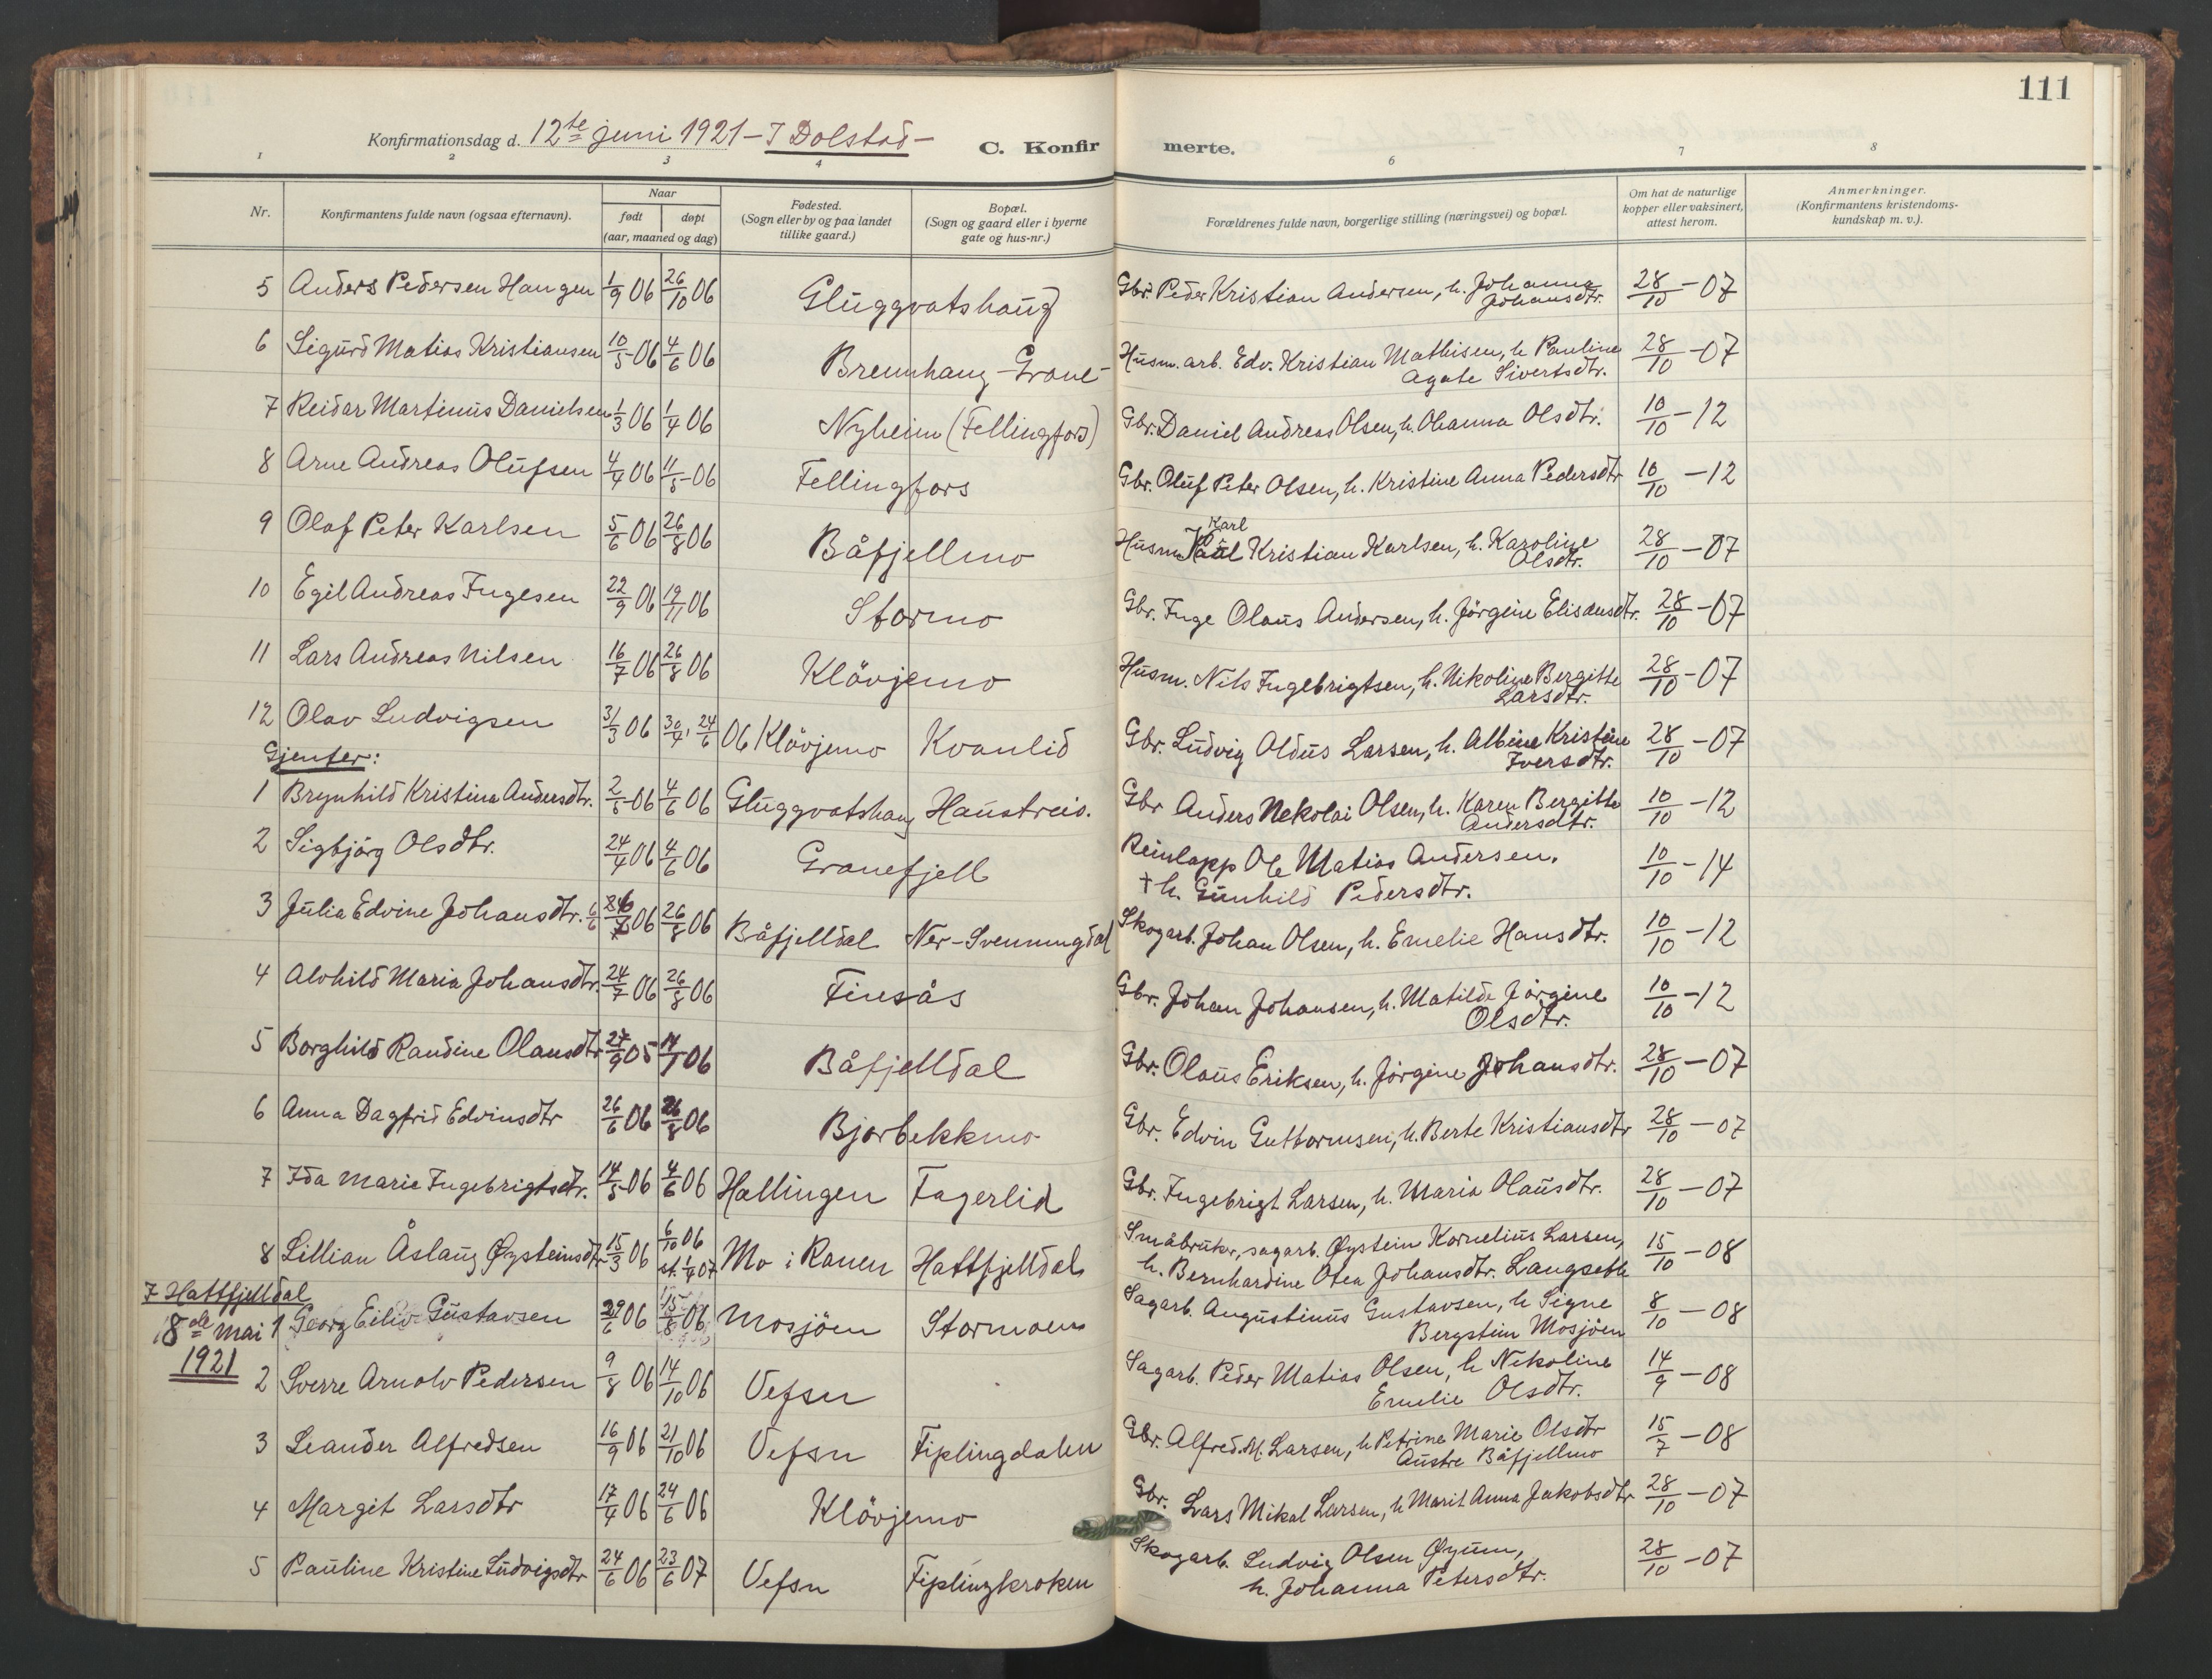 111
Konfirmationsdag d. 12te juni 1921 - I Dolstad -
C. Konfir merte.
1 2 3 4 6 7 8
Nr. Konfirmantens fulde navn (ogsaa efternavn). Naar født døpt (aar, maaned og dag) Fødested. (Sogn eller by og paa landet tillike gaard.) Bopæl. (Sogn og gaard eller i byerne gate og hus-nr.) Forældrenes fulde navn, borgerlige stilling (næringsvei) og bopæl. Om hat de naturlige kopper eller vaksinert, attest herom. Anmerkninger. (Konfirmantens kristendoms-kundskap m. v.).
5 Anders Pedersen Haugen 1/9 06 26/10 06 Gluggvatshaug Gbr. Peder Kristian Andersen, h. Johanna Johansdtr. 28/10 - 07
6 Sigurd Matias Kristiansen 10/5 06 4/6 06 Brennhaug - Grane - Husm. arb. Edv. Kristian Mathisen, h. Pauline Agate Sivertsdtr. 28/10 - 07
7 Reidar Martinus Danielsen 1/3 06 1/4 06 Nyheim (Fellingfors) Gbr. Daniel Andreas Olsen, h. Ohanna Olsdtr. 10/10 - 12
8 Arne Andreas Olufsen 4/4 06 11/5 06 Fellingfors Gbr. Oluf Peter Olsen, h. Kristine Anna Pedersdtr 10/10 - 12
9 Olaf Peter Karlsen 5/6 06 26/8 06 Båfjellmo Husm. Karl Kristian Karlsen, h. Karoline Olsdtr. 28/10 - 07
10 Egil Andreas Ingesen 22/9 06 19/11 06 Stormo Gbr. Inge Olaus Andersen, h. Jörgine Elisausdtr. 28/10 - 07
11 Lars Andreas Nilsen 16/7 06 26/8 06 Klövjemo Husm. Nils Ingebrigtsen, h. Nikoline Bergitte Larsdtr. 28/10 - 07
12 Olav Ludvigsen 31/3 06 30/4, 24/6 06 Klövjemo Kvanlid Gbr. Ludvig Aldus Larsen, h. Albine Kristine Iversdtr. 28/10 - 07
Gjenter:
1 Brynhild Kristina Andersdtr. 2/5 06 4/6 06 Gluggvatshaug Haustreis. Gbr Anders Nekolai Olsen, h. Karen Bergitte Andersdtr. 10/10 - 12
2 Sigbjörg Olsdtr. 24/4 06 4/6 06 Granefjell Reinlapp Ole Matias Andersen. + h. Gunhild Pedersdtr. 10/10 - 14
3 Julia Edvine Johansdtr. 6/6 06 26/8 06 Båfjelldal Ner-Svenningdal Skogarb. Johan Olsen, h. Emelie Hansdtr. 10/10 - 12
4 Alvhild Maria Johansdtr. 24/7 06 26/8 06 Finsås Gbr. Johan Johansen, h. Matilde Jörgine Olsdtr. 10/10 - 12
5 Borghild Randine Olausdtr 27/9 05 14/1 06 Båfjelldal Gbr. Olaus Eriksen, h. Jörgine Johansdtr. 28/10 - 07
6 Anna Dagfrid Edvinsdtr 26/6 06 26/8 06 Bjorbekkmo Gbr. Edvin Guttormsen, h. Berte Kristiansdtr 28/10 - 07
7 Ida Marie Ingebrigtsdtr. 14/5 06 4/6 06 Hallingen Fagerlid Gbr. Ingebrigt Larsen, h. Maria Olausdtr. 28/10 - 07
8 Lillian Åslaug Øysteinsdtr 15/3 06 6/10 06 st. 1/4 07 Mo i Ranen Hattfjelldal Småbruker, sagarb. Øystein Kornelius Larsen, h. Bernhardine Otea Johansdtr. Langseth 15/10 - 08
I Hattfjelldal
18de mai 1 Georg Eiliv Gustavsen 29/6 06 15/8 06 Mosjöen Stormoen Sagarb. Augustinus Gustavsen, h Signe Bergstein Mosjöen 8/10 - 08
1921
2 Sverre Arnolv Pedersen 9/8 06 14/10 06 Vefsn Sagarb. Peder Matias Olsen, h Nekoline Emelie Olsdtr. 14/9 - 08
3 Leander Alfredsen 16/9 06 21/10 06 Vefsn Fiplingdalen Gbr. Alfred M. Larsen, h Petrine Marie Olsdtr Austre Båfjellmo 15/7 - 08
4 Margit Larsdtr 17/4 06 24/6 06 Klövjemo Gbr. Lars Mikal Larsen, h Marit Anna Jakobsdtr 28/10 - 07
5 Pauline Kristine Ludvigsdtr 24/6 06 23/6 07 Vefsn Fiplingkroken Skogarb. Ludvig Olsen Øyum, h. Johanna Petersdtr. 28/10 - 07